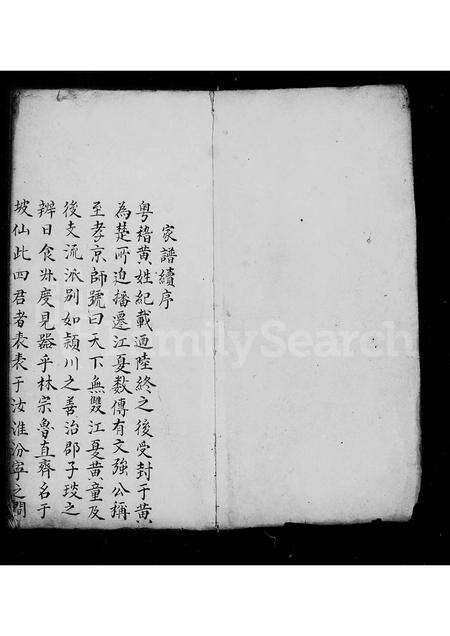 家譜續序
粵稽黄姓紀載迺陸終之後受封于黄
為楚所迫播遷江夏数傳有文強公稱
至孝京師號曰天下無雙江夏黄童及
後支流派別如頴川之善治郡子琰之
辨日食州度見器乎林宗魯直齊名于
坡仙此四君者表表于汝淮汾寧之間
FamilySearch